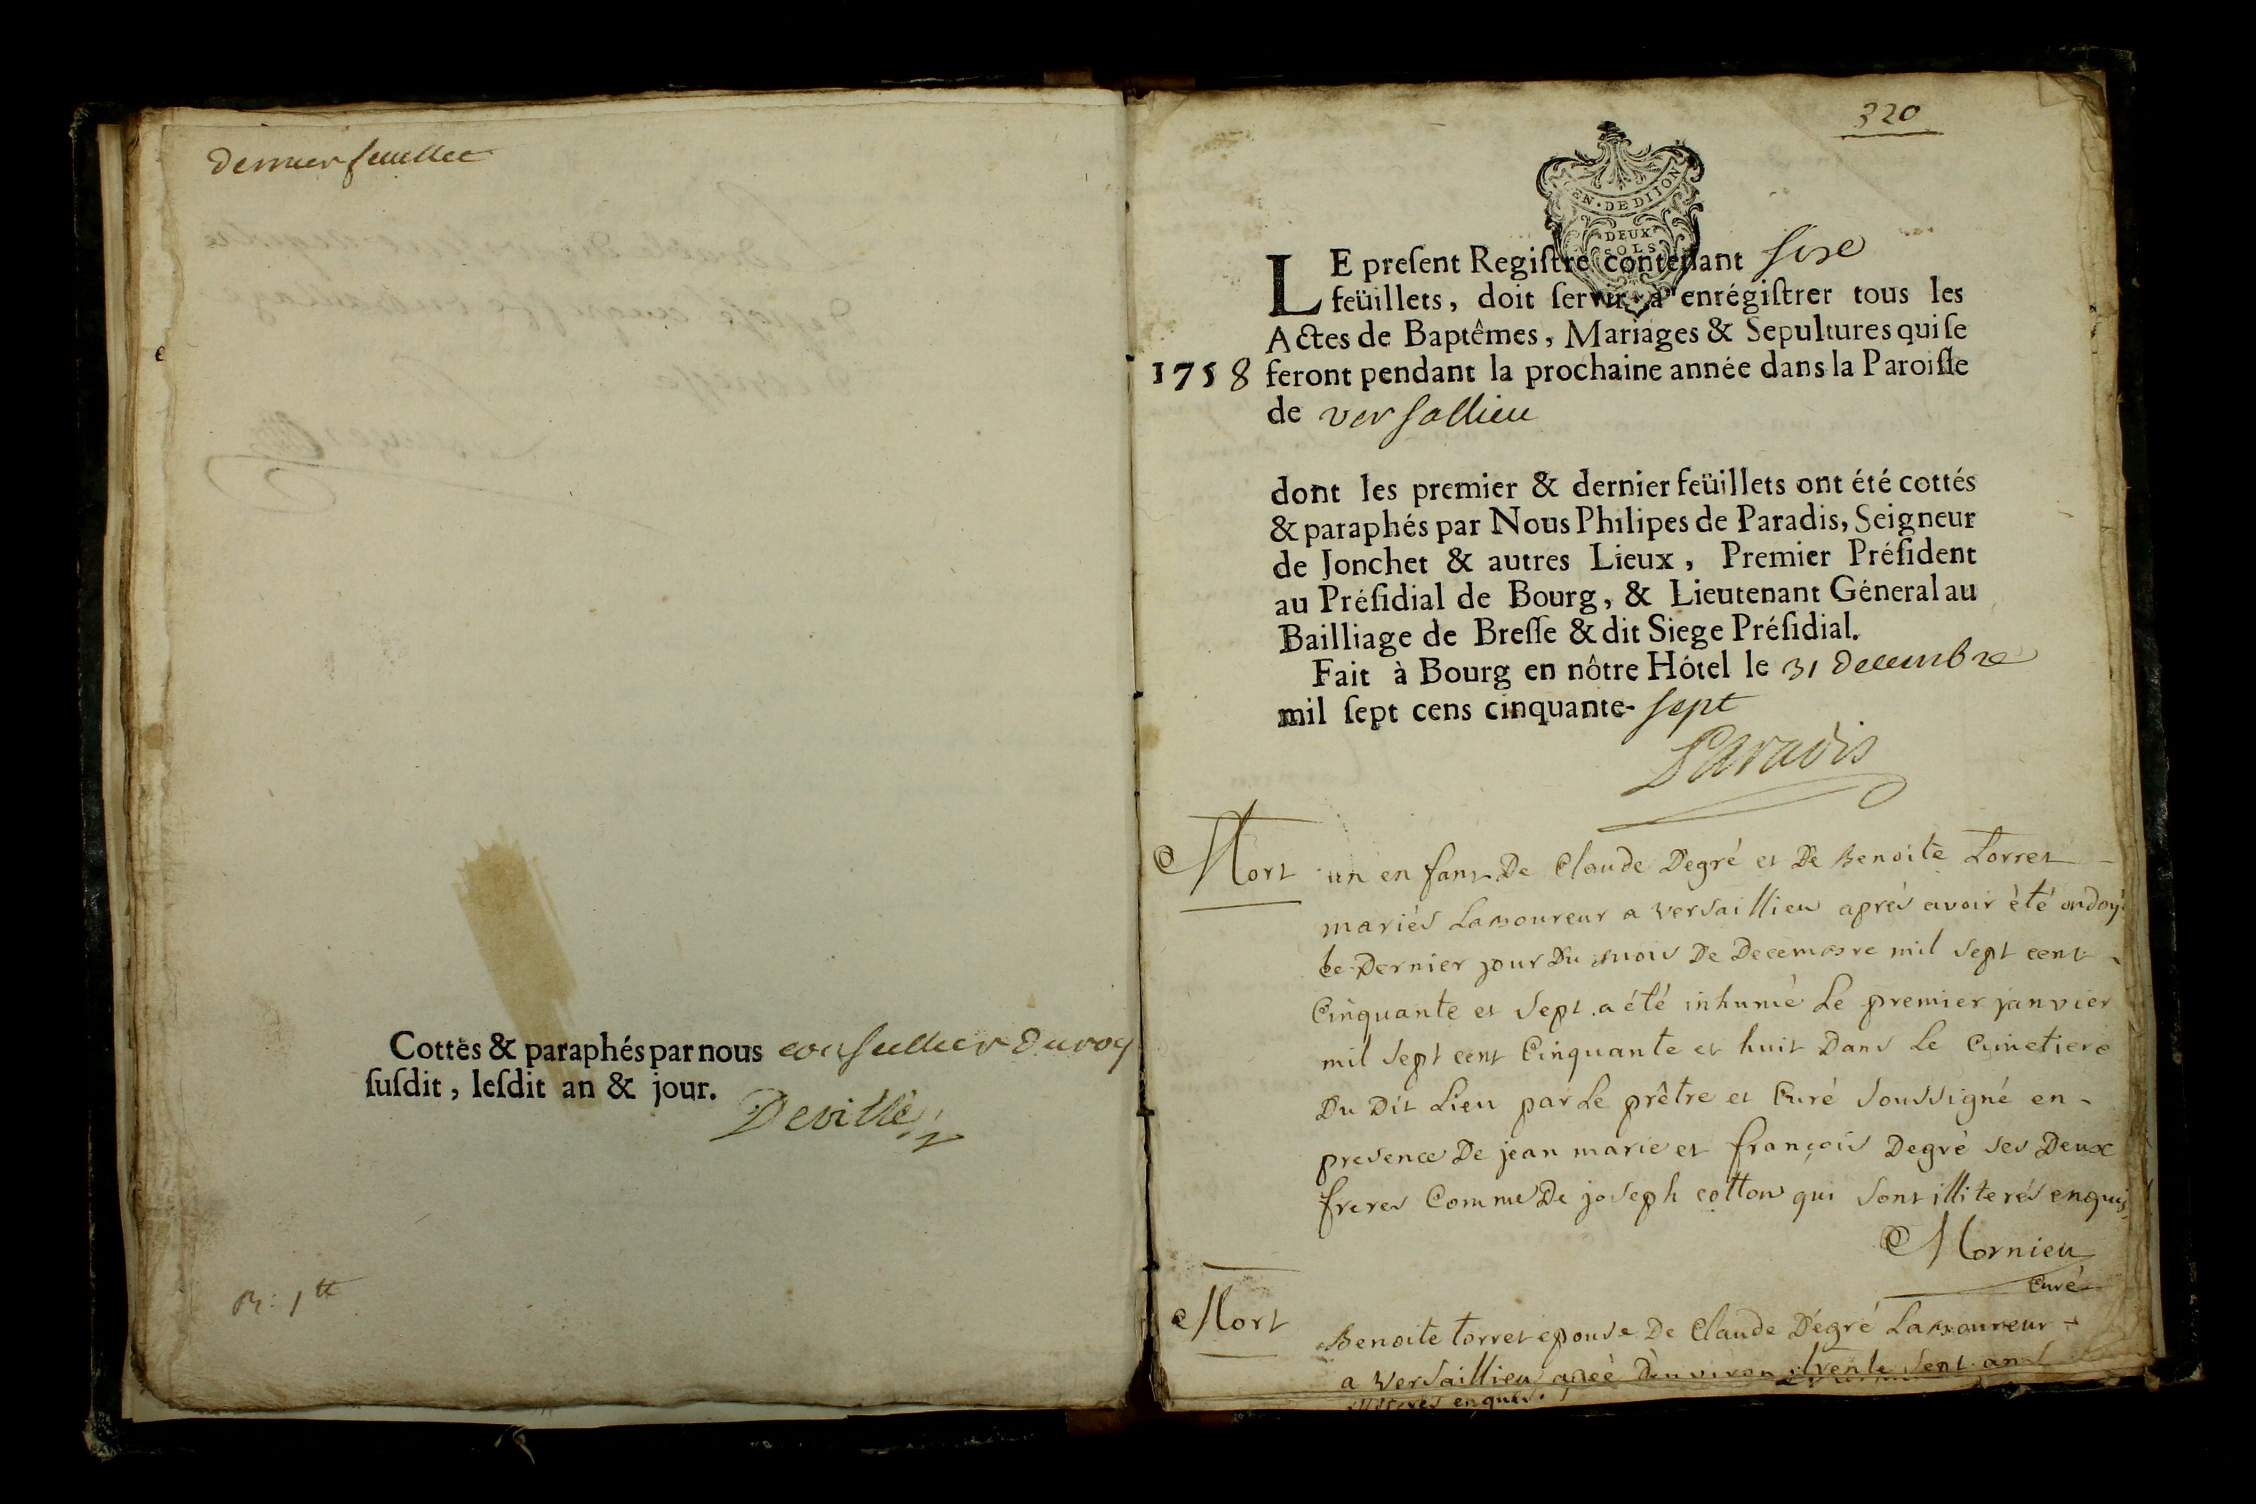 dernier feuillet
Cottés & paraphés par nous conseiller du roy
ſuſdit, leſdit an & jour.
Deville
R: 1tt
320
GEN · DE DIJON
DEUX
SOLS
LE preſent Regiſtre contenant sixe
feüillets, doit ſervir à enrégiſtrer tous les
Actes de Baptêmes, Mariages & Sepultures qui ſe
1758 feront pendant la prochaine année dans la Paroiſſe
de versallieu
dont les premier & dernier feüillets ont été cottés
& paraphés par Nous Philipes de Paradis, Seigneur
de Jonchet & autres Lieux, Premier Préſident
au Préſidial de Bourg, & Lieutenant Géneral au
Bailliage de Breſſe & dit Siege Préſidial.
Fait à Bourg en nôtre Hôtel le 31 decembre
mil ſept cens cinquante-sept
Paradis
Mort un enfant De Claude Degré et De Benoite Torret
mariés Laboureur a versaillieu aprés avoir été ondoyé
le Dernier jour Du mois De Decembre mil sept cent
Cinquante et sept a été inhumé Le premier janvier
mil sept cent Cinquante et huit Dans Le Cimetiere
Du Dit Lieu par Le prêtre et Curé soussigné en
presence De jean marie et françois Degré ses Deux
freres Comme De joseph cotton qui sont illiterés enquis
Mornieu
Curé
Mort Benoite torret epouse De Claude Degré Laboureur
a versaillieu agée D'environ trente sept ans
illiterés enquis.